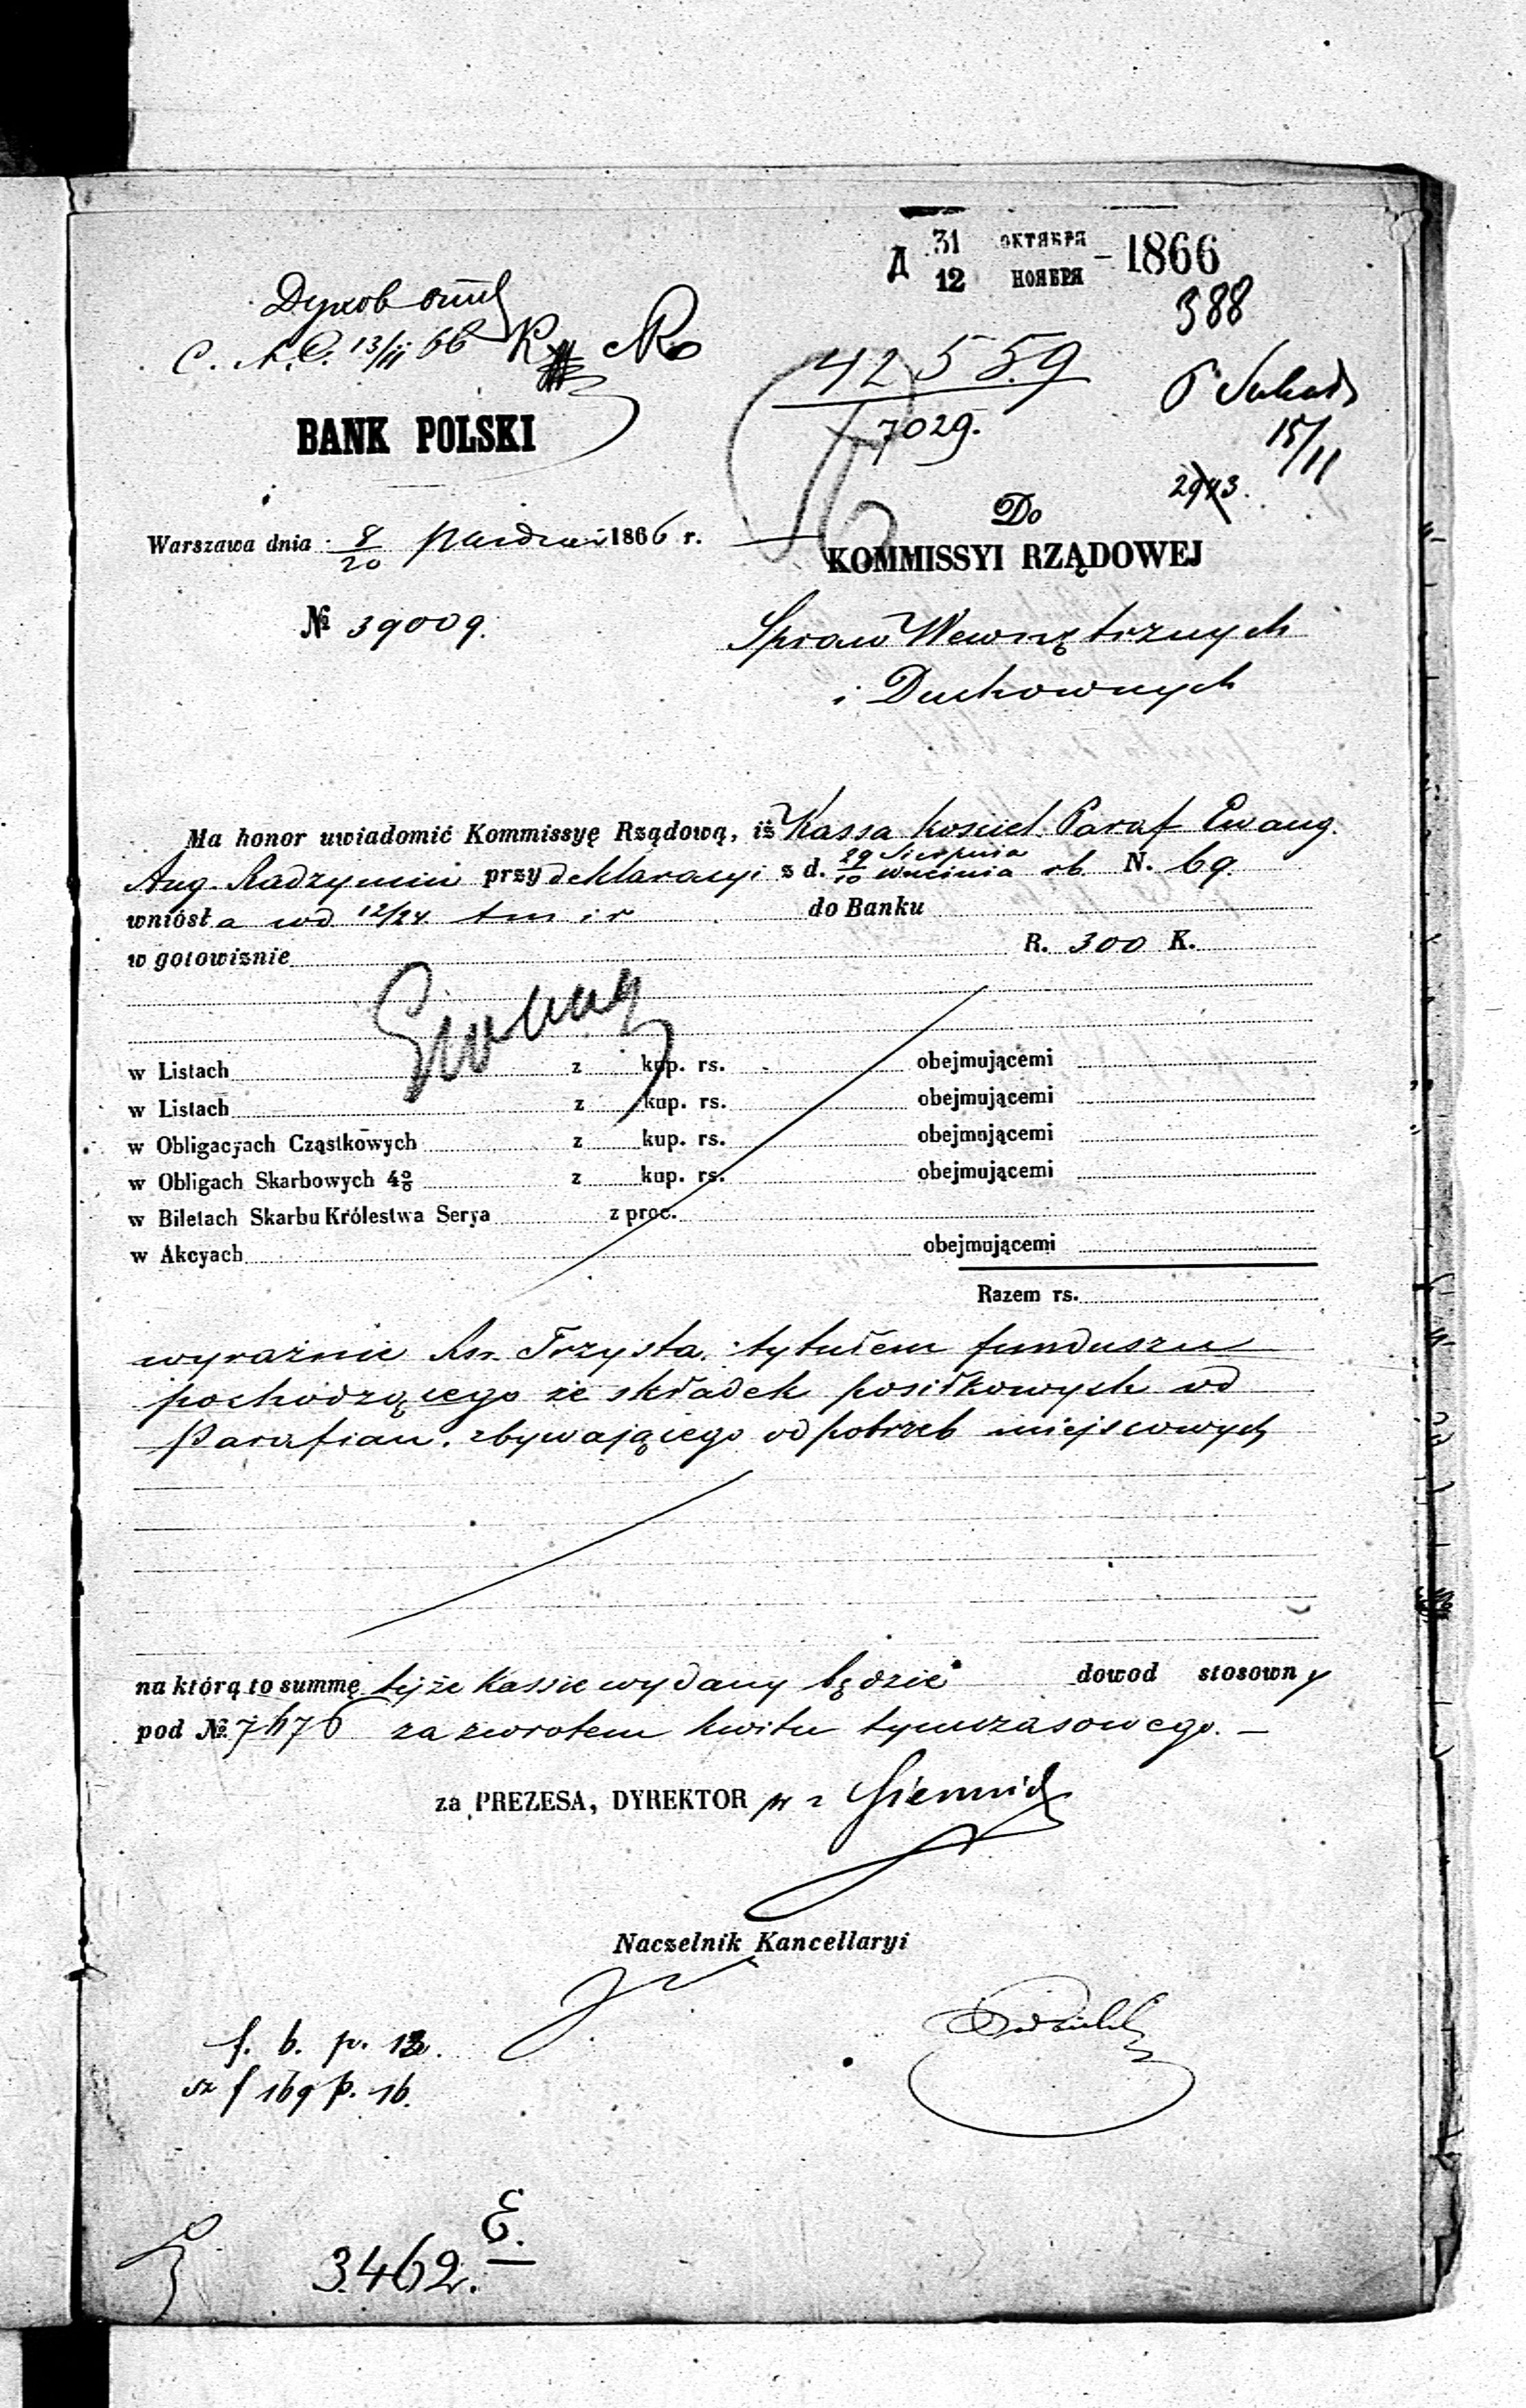 Д 31 ОКТЯБРЯ
12 НОЯБРЯ - 1866
388
Духов
13/11 66
42559
7029.
15/11
2943.
BANK POLSKI
Warszawa dnia 8/20 1866 r.
№ 39009.
Do
KOMMISSYI RZĄDOWEJ
Spraw Wewnętrznych
i Duchownych
Ma honor uwiadomić Kommissyę Rządową, iż Kassa kościel. Paraf Ewang.
Aug. Radzymin przy deklaracyi z d. 29 Sierpnia / 10 Września rb. N. 69.
wniosła wd 12/24 tm i r do Banku
w gotowiznie R. 300 K.
w Listach z kup. rs. obejmującemi
w Listach z kup. rs. obejmującemi
w Obligacyach Cząstkowych z kup. rs. obejmującemi
w Obligach Skarbowych 4% z kup. rs. obejmującemi
w Biletach Skarbu Królestwa Serya z proc.
w Akcyach obejmującemi
Razem rs.
wyraźnie Rsr. Trzysta. tytułem funduszu
pochodzącego ze składek posiłkowych od
Parafian. zbywającego od potrzeb miejscowych
na którą to summę tejże Kassie wydany będzie dowod stosowny
pod № 7676 za zwrotem kwitu tymczasowego. —
za PREZESA, DYREKTOR
Naczelnik Kancellaryi
f. b. p. 13.
f 169 p. 16.
E.
3462.